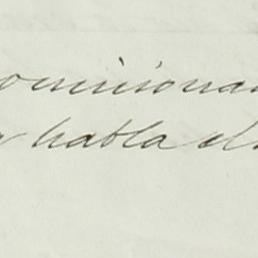 omisiona
habla el